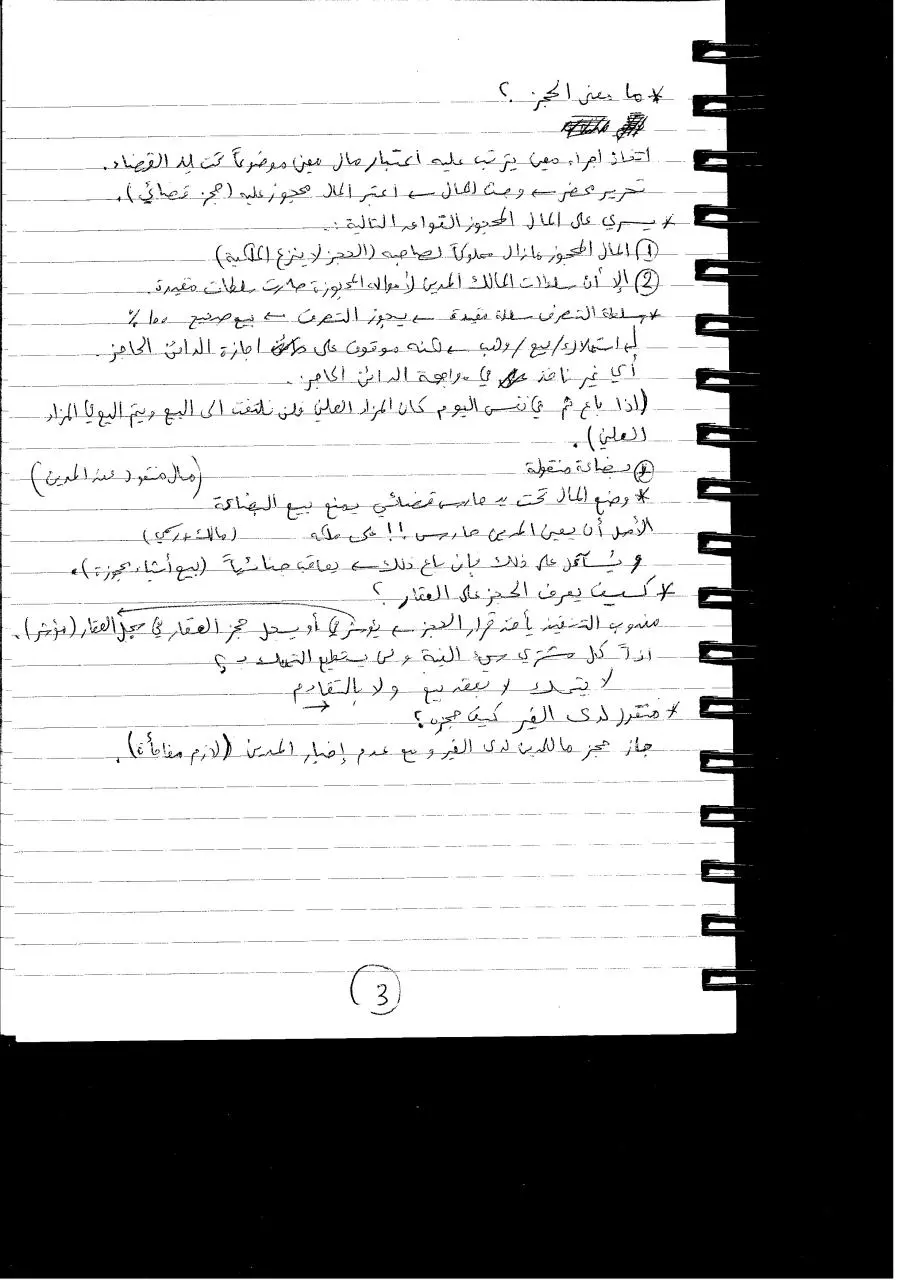 * ما معنى الحجز ؟
اتخاذ اجراء معين يترتب عليه اعتبار مال معين موضوعاً تحت يد القضاء.
تحرير محضر ← وصف المال ← اعتبر المال محجوز عليه (حجز قضائي).
* يسري على المال المحجوز القواعد التالية :.
① المال المحجوز مازال مملوكاً لصاحبه (الحجز لا ينزع الملكية)
② إلا أن سلطات المالك المدين لأمواله المحجوزة صارت سلطات مقيدة.
* سلطة التصرف سلطة مقيدة ← يجوز التصرف ← بيع صحيح 100 %
استملاك/بيع/وهب ← لكنه موقوف على اجازة الدائن الحاجز.
أي غير نافذ في مواجهة الدائن الحاجز.
(اذا باع ثم في نفس اليوم كان المزاد العلني فلن نلتفت الى البيع ويتم البيع في المزاد
العلني).
* بضاعة منقولة (مال منقول عند المدين)
* وضع المال تحت يد حارس قضائي يمنع بيع البضاعة
الأصل أن يعين المدين حارس !! على ملكه (مالك وحارس)
و يُسأل على ذلك فإن باع ذلك ← يعاقب جنائياً (بيع أشياء محجوزة).
* كيف يعرف الحجز على العقار ؟
مندوب التنفيذ يأخذ قرار الحجز ← يؤشر في أو يسجل حجز العقار في سجل العقار (مؤشر).
اذاً كل مشتري سيء النية و لن يستطيع التملك ← ؟
لا يتملك لا بعقد بيع ولا بالتقادم
* منقول لدى الغير كيف حجزه ؟
جاز حجز ما للمدين لدى الغير و مع عدم إخبار المدين (لازم مفاجأة).
3